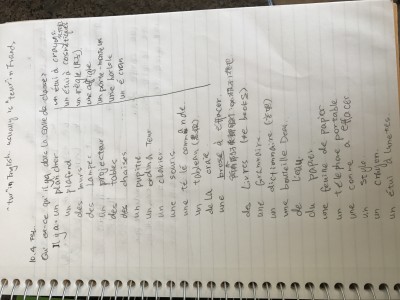 - Twin in English usually is "jumeau" in French.
Qu'est-ce qu'il y a dans la salle de classe?
Il y a - un plancher
un plafond
des murs
des lampes
un projecteur
des tables
des chaises
un pupitre
un ordinateur
un clavier
une souris
une télécommande
un tableau
de la craie
une brosse à effacer
des livres (le book)
une grammaire
un dictionnaire
une bouteille D'eau
L'eau
du papier
une feuille de papier
un téléphone portable
une gomme à effacer
un stylo
un crayon
un étui à lunettes
un étui à crayons
un étui à cosmétiques
un règle
une affiche
un porte-manteau
une horloge
un écran